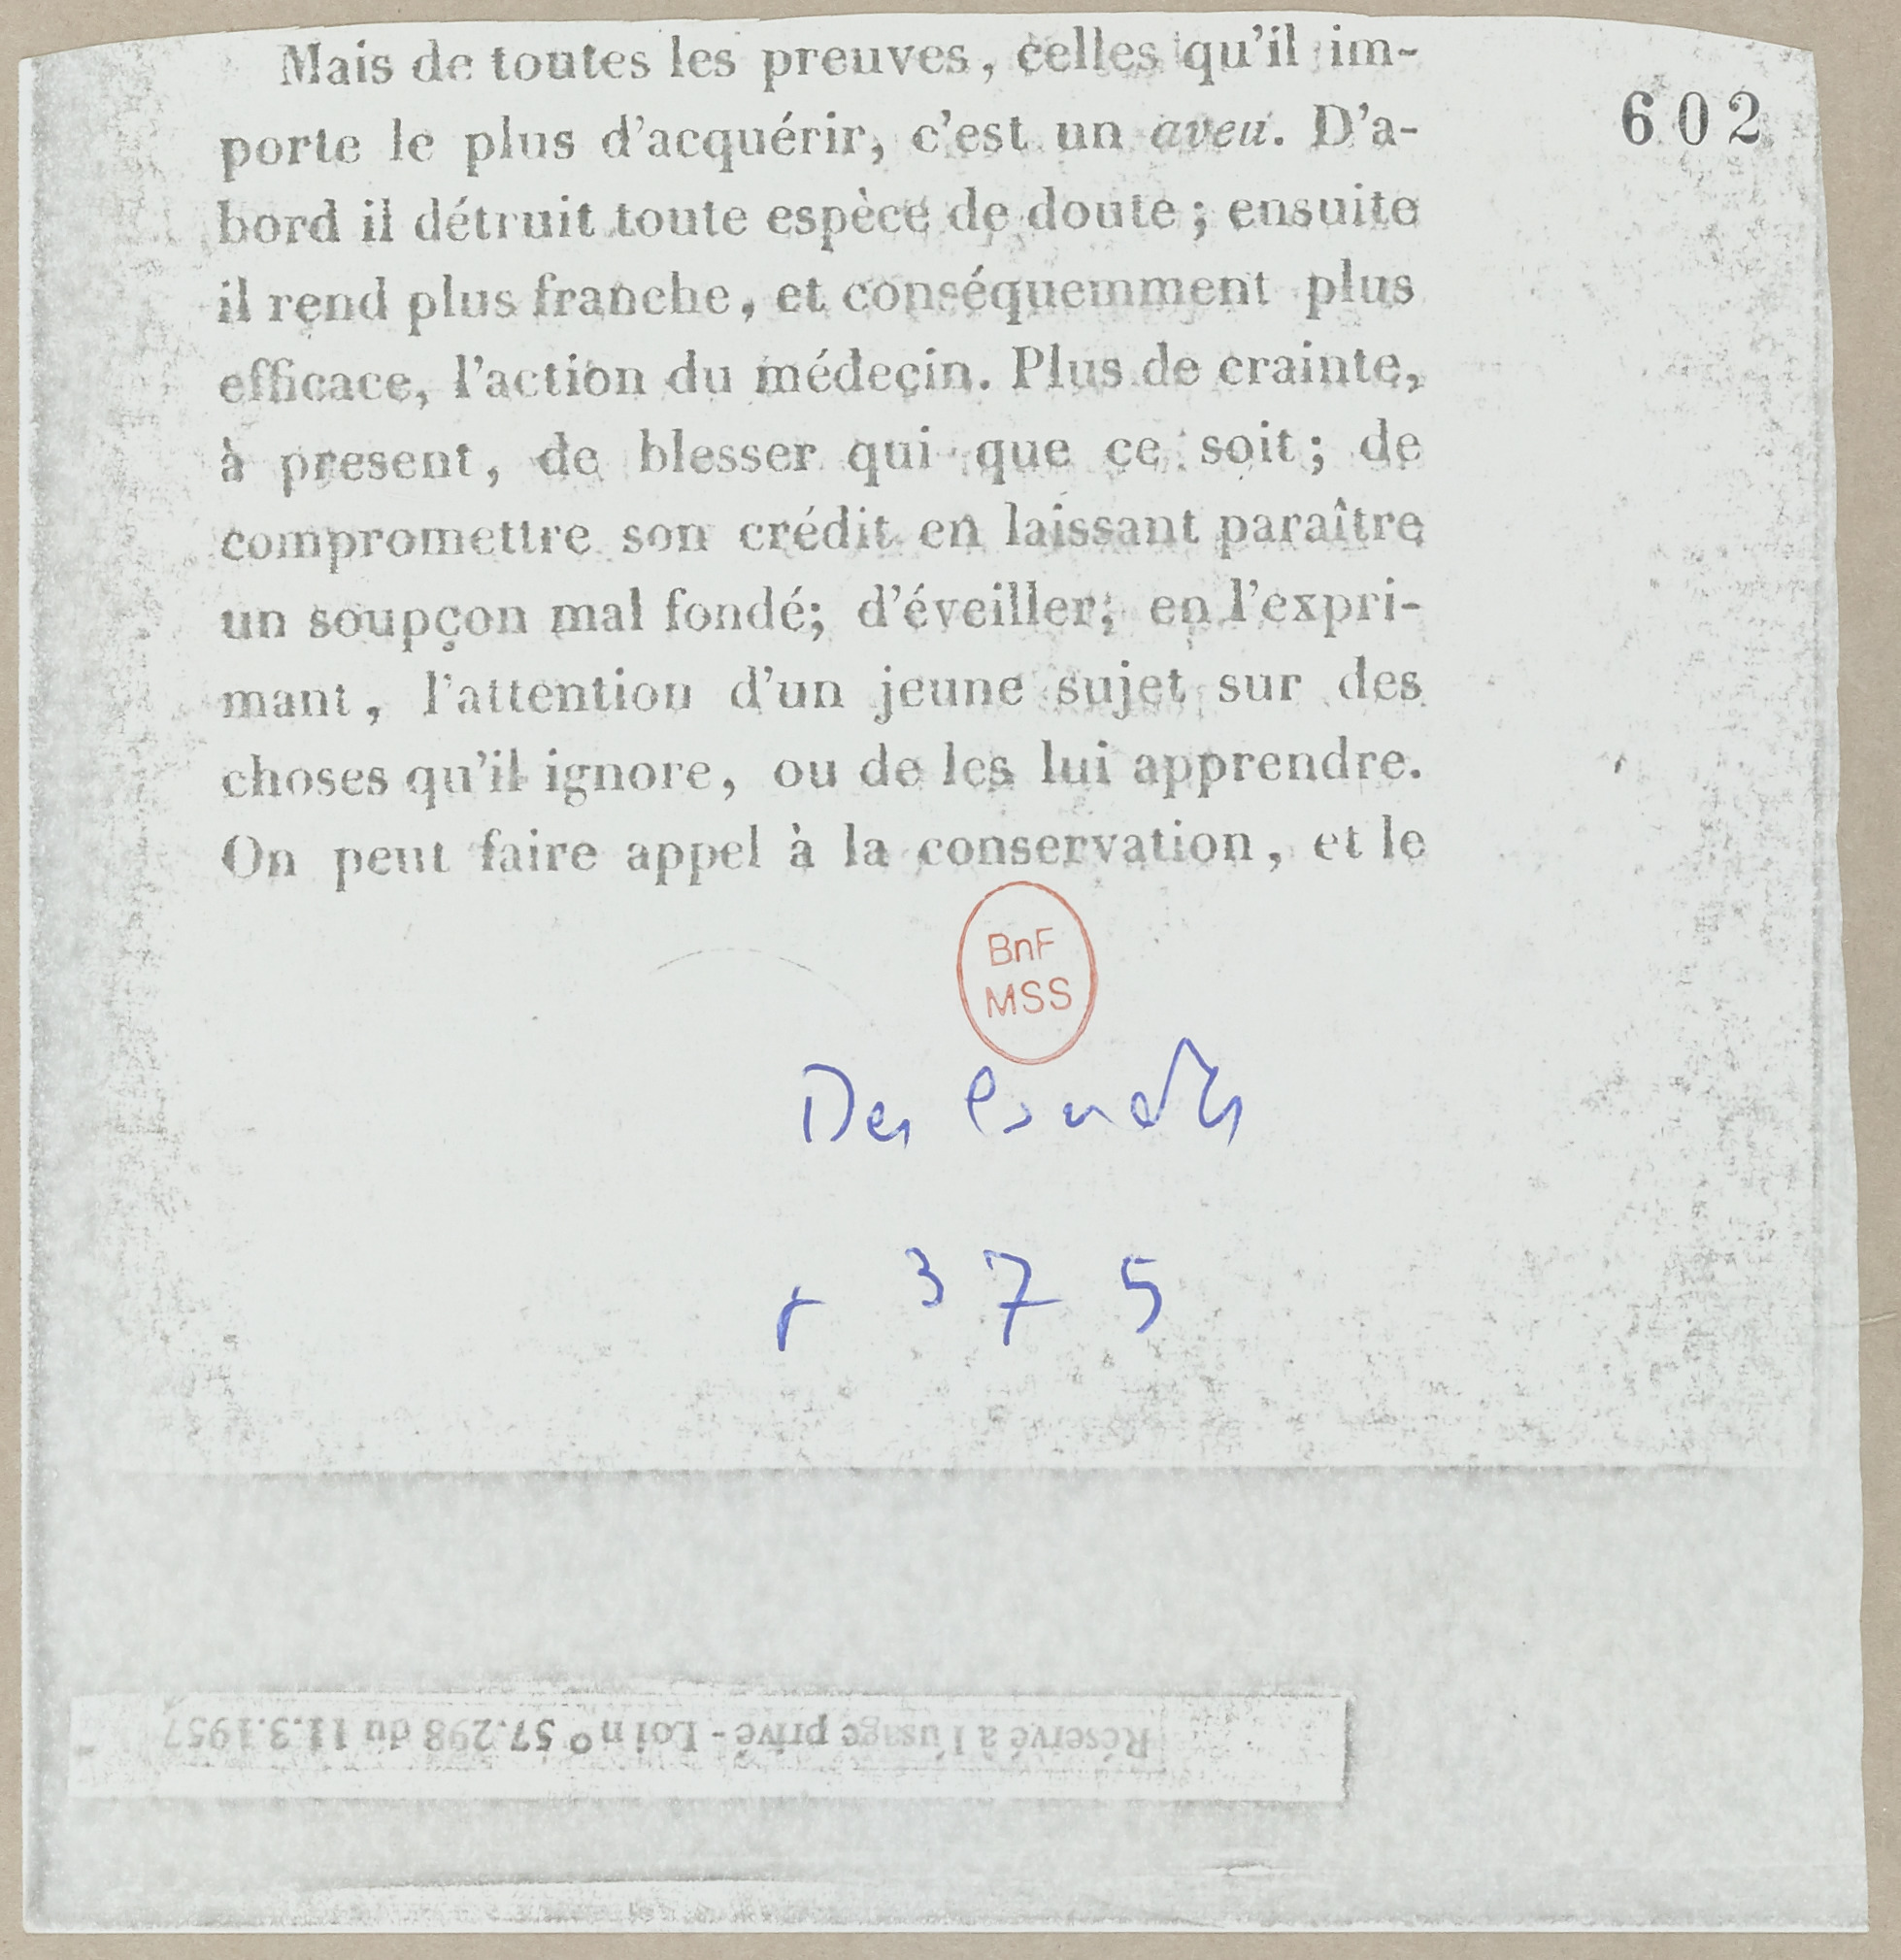 Mais de toutes les preuves, celles qu'il im-
porte le plus d'acquérir, c'est un aveu. D'a-
602
bord il détruit toute espèce de doute ; ensuite
il rend plus franche, et conséquemment plus
efficace, l'action du médecin. Plus de crainte,
à present, de blesser qui que ce soit ; de
compromettre son crédit en laissant paraître
un soupçon mal fondé; d'éveiller, en l'expri-
mant, l'attention d'un jeune sujet sur des
choses qu'il ignore, ou de les lui apprendre.
On peut faire appel à la conservation, et le
BnF
MSS
375
Réservé à l'usage privé - Loi nº 57.298 du 11.3.1957